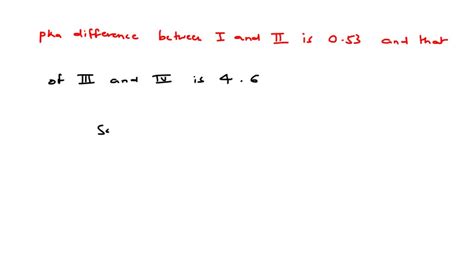 pka difference between I and II is 0.53 and that
of III and IV is 4.6